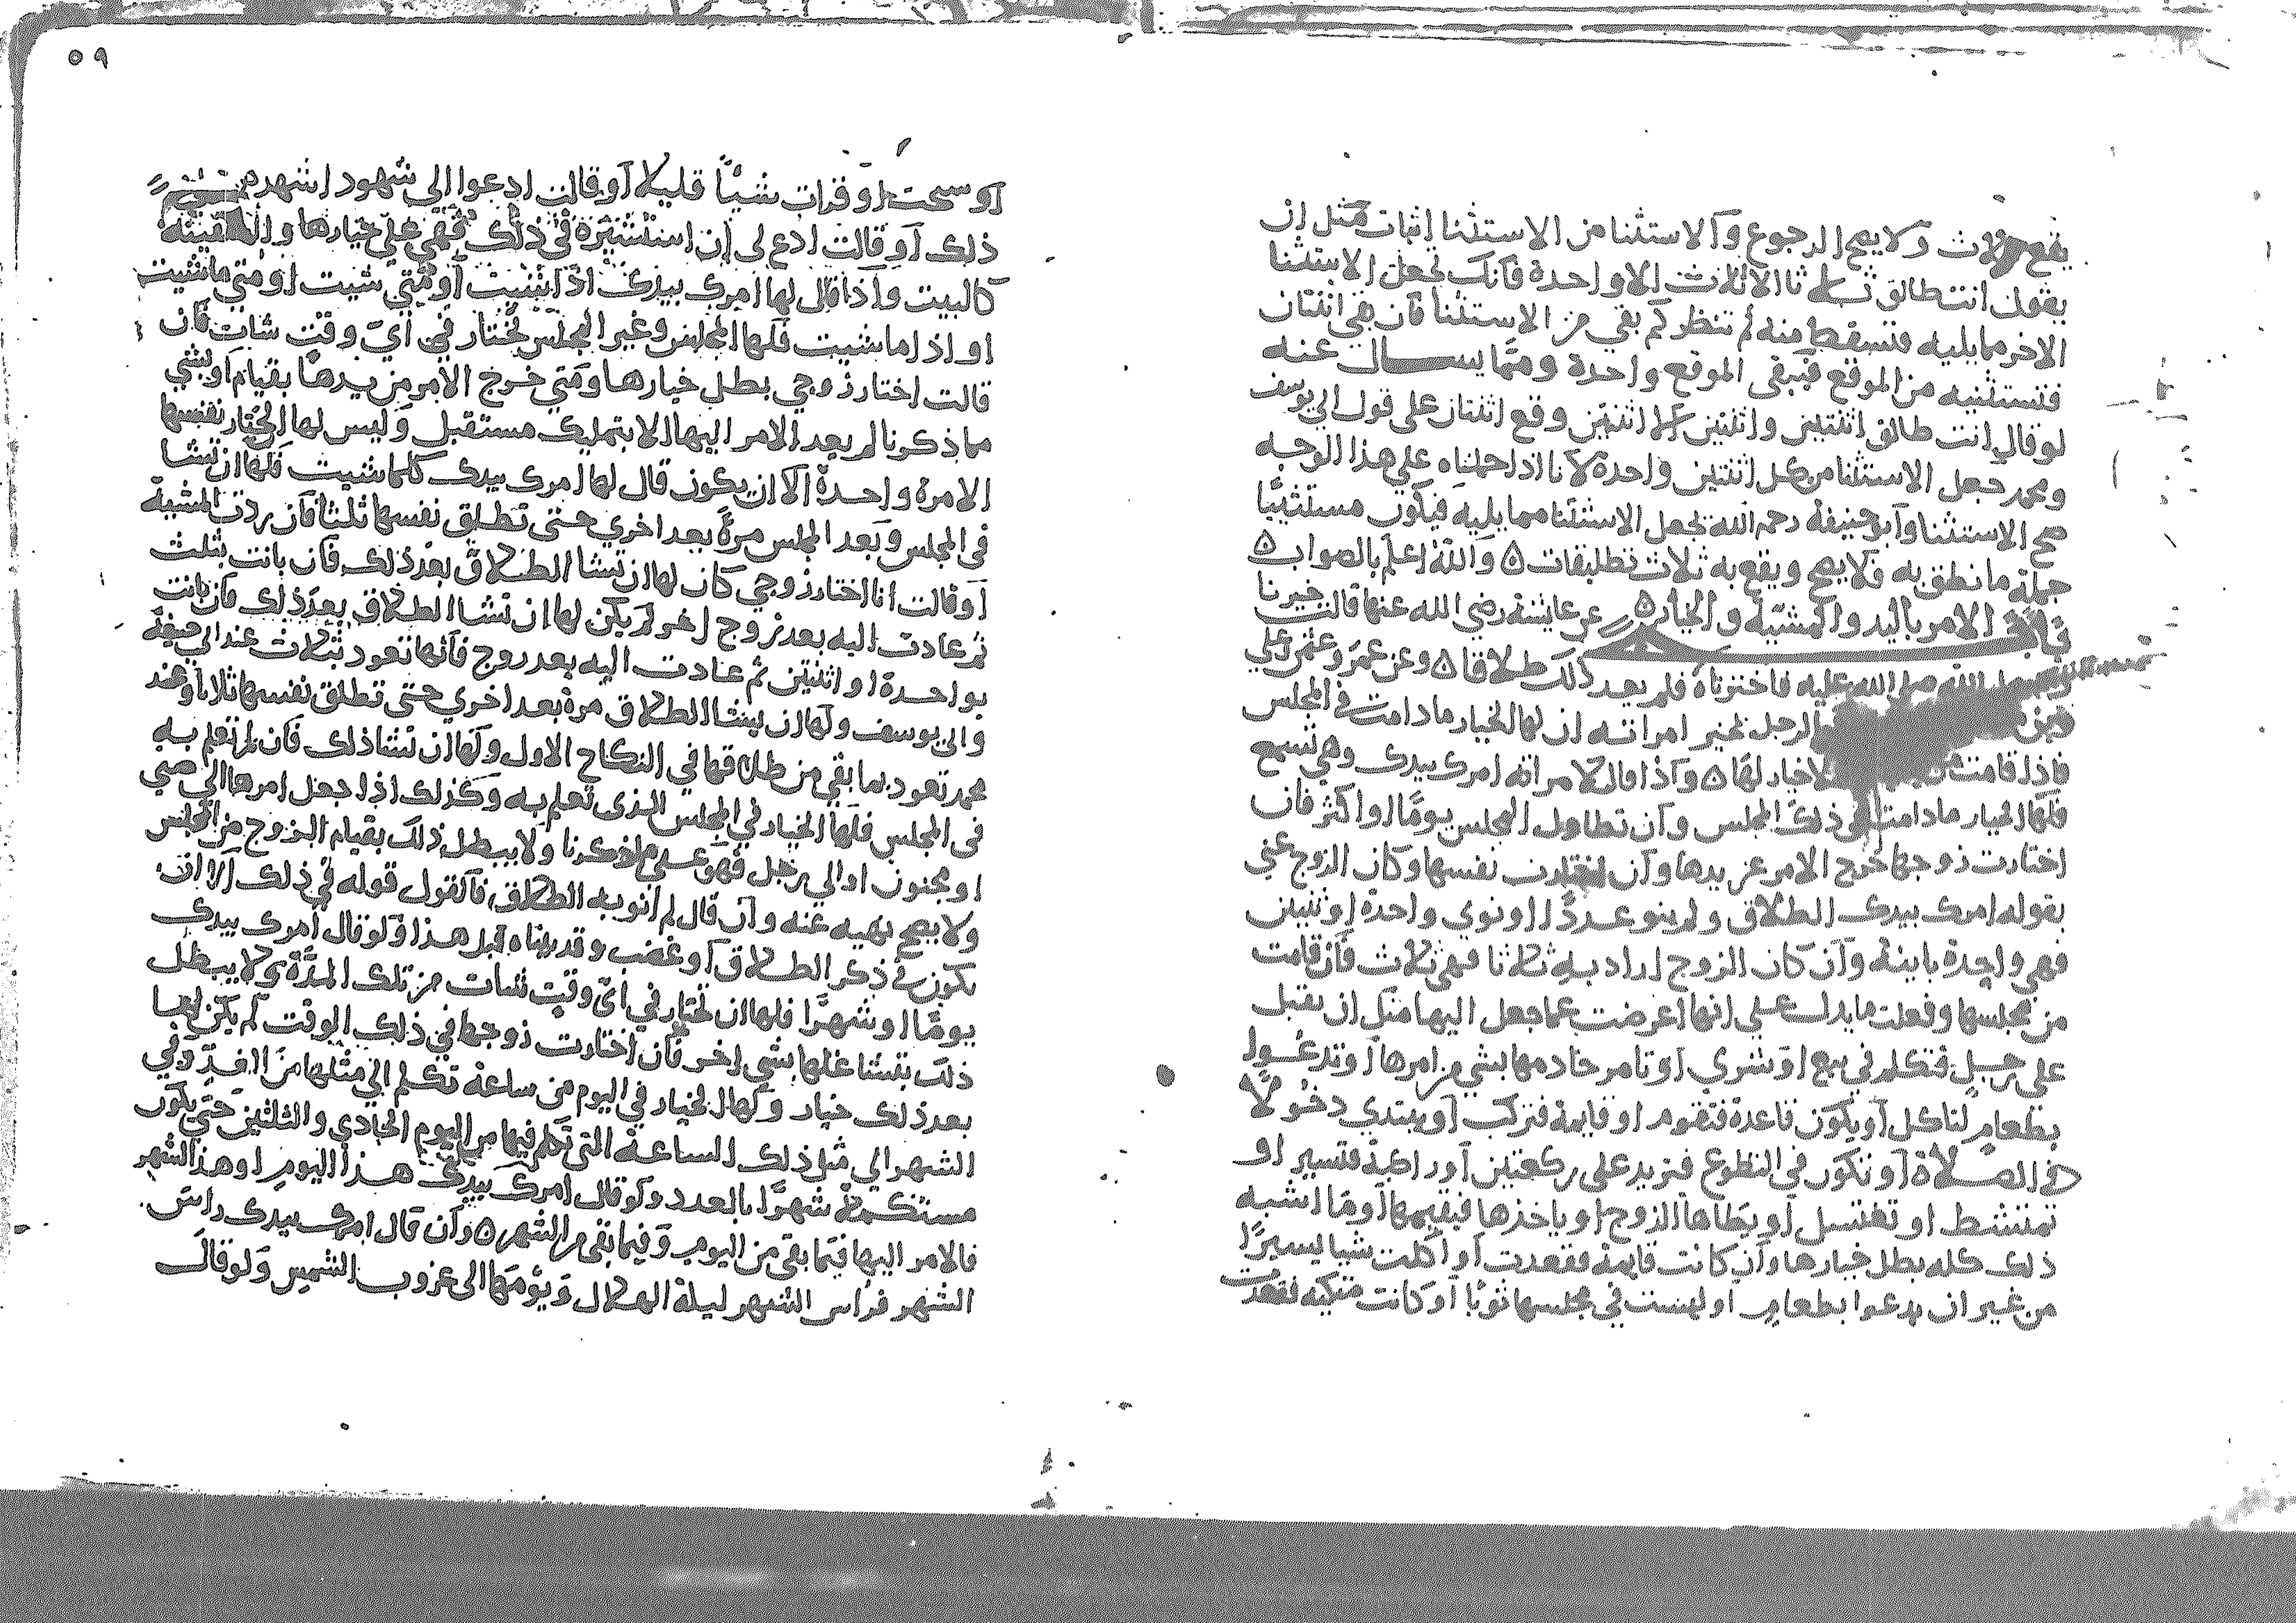 يقع ثلاث ولا يصح الرجوع والاستثنا من الاستثنا اثبات مثل ان
يقول انت طالق ثلاثا الا ثلاث الا واحدة فانك تجعل الاستثنا
الاخر مما يليه فتسقط منه ثم تنظر كم بقي من الاستثنا فان بقي اثنتان
فتستثنيه من الموقع فيبقى الموقع واحدة ومما يسال عنه
لو قال انت طالق اثنتين واثنتين الا اثنتين وقع اثنتان على قول ابي يوسف
ومحمد تجعل الاستثنا من كل اثنتين واحدة لانا اذا حملناه على هذا الوجه
صح الاستثنا وابو حنيفة رحمه الله تجعل الاستثنا مما يليه فيكون مستثنيا
جملة ما نطق به فلا يصح ويقع به ثلاث تطليقات ه والله اعلم بالصواب ه
باب الامر باليد والمشية والخيار ه عن عايشة رضي الله عنها قالت خيرنا
رسول الله صلى الله عليه فاخترناه فلم يعد ذلك طلاقا ه وعن عمر وعثمن وعلي
الرجل يخير امراته ان لها الخيار ما دامت في المجلس
فاذا قامت لا خيار لها ه واذا قال لامراته امرك بيدك وهي تسمع
فلها الخيار ما دامت في ذلك المجلس وان تطاول المجلس يوما او اكثر فان
اختارت زوجها خرج الامر عن يدها وان اختارت نفسها وكان الزوج عني
بقوله امرك بيدك الطلاق ولم ينو عددا او نوي واحدة او ثنتين
فهي واحدة باينة وان كان الزوج اراد به ثلاثا فهي ثلاث فان قامت
من مجلسها وفعلت ما يدل على انها اعرضت عما جعل اليها مثل ان تقبل
على رجل فتكلم في بيع او شري او تامر خادمها بشي من امرها او تدعوا
بطعام لتاكل او يكون قاعدة فتقوم او قايمة فتركب او يبتدي دخولا
في الصلاة او تكون في التطوع فتزيد على ركعتين او راكبة فتسير او
تمتشط او تغتسل او يطاها الزوج او ياخذها فيقيمها او ما اشبه
ذلك كله بطل خيارها وان كانت قايمة فقعدت او اكلت شيا يسيرا
من غير ان يدعوا بطعام او لبست في مجلسها ثوبا او كانت متكيه فقعدت
٥٩
او سبحت او قرات شيا قليلا او قالت ادعوا الي شهود اشهدهم
ذلك او قالت ادع لي استشيره في ذلك فهي على خيارها والسفينه
كالبيت واذا قال لها امرك بيدك اذا شيت او متى شيت او متى ما شيت
او اذا ما شيت فلها المجلس وغير المجلس تختار في اي وقت شات فان
قالت اختار زوجي بطل خيارها ومتى خرج الامر من يدها بقيام او بشي
مما ذكرنا لم يعد الامر اليها الا بتمليك مستقبل وليس لها ان تختار نفسها
الا مرة واحدة الا ان يكون قال لها امرك بيدك كلما شيت فلها ان تشا
في المجلس وبعد المجلس مرة بعد اخري حتى تطلق نفسها ثلثا فان ردت المشية
او قالت انا اختار زوجي كان لها ان تشا الطلاق بعد ذلك فان بانت بثلث
ثم عادت اليه بعد زوج اخر لم يكن لها ان تشا الطلاق بعد ذلك فان بانت
بواحدة او اثنتين ثم عادت اليه بعد زوج فانها تعود بثلاث عند ابي حنيفة
وابي يوسف ولها ان تشا الطلاق مرة بعد اخري حتى تطلق نفسها ثلاثا وعند
محمد تعود بما بقي من طلاقها في النكاح الاول ولها ان تشا ذلك فان لم تعلم به
في المجلس فلها الخيار في المجلس الذي تعلم به وكذلك اذا جعل امرها الى صبي
او مجنون او الى رجل فهو على ما ذكرنا ولا يبطل ذلك بقيام الزوج من المجلس
ولا يصح نهيه عنه وان قال لم انو به الطلاق فالقول قوله في ذلك الا ان
يكون في ذكر الطلاق او غضب وقد بيناه قبل هذا ولو قال امرك بيدك
يوما او شهرا فلها ان تختار في اي وقت شات من تلك المدة ولا يبطل
ذلك بتشاغلها بشي اخر فان اختارت زوجها في ذلك الوقت لم يكن لها
بعد ذلك خيار ولها الخيار في اليوم من ساعة تكلم الي مثلها من الغد وفي
الشهر الي مثل ذلك الساعة التي تكلم فيها من اليوم الحادي والثلثين حتى يكون
مستكملة شهرا بالعدد ولو قال امرك بيدك هذا اليوم او هذا الشهر
فالامر اليها فيما بقي من اليوم وفيما بقي من الشهر ه وان قال امرك بيدك راس
الشهر فراس الشهر ليلة الهلال ويومها الى غروب الشمس ولو قال